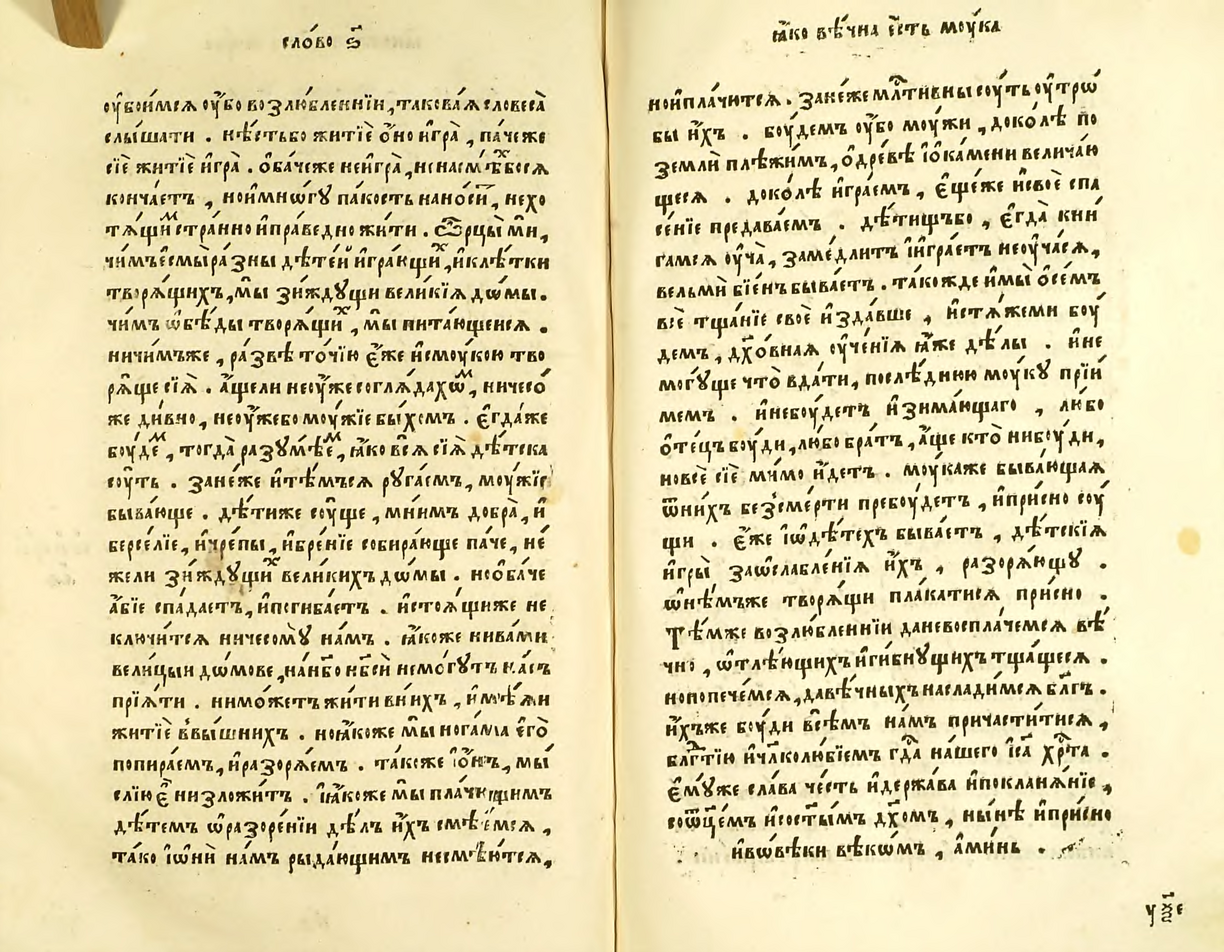 сло́во ѕ҃
оу҆боимсѧ оу҆бо возлю́бленнїи, такова́ѧ словеса̀
слы́шати . нѣ́стьбо житїѐ ѻ҆́но и҆гра̀ , па́чеже
сїѐ житїѐ и҆гра̀ . ѻ҆ба́чеже неи҆гра̀, ненасмѣ́хбосѧ
конча́етъ , нои҆мнѡ́гꙋ па́кость нано́си , нехо
тѧ́щим стра́нно и҆пра́ведно жи́ти . ѿрцы́ ми ,
чи́мъ є҆смы̀ ра́зны дѣте́й и҆гра́ющих , и҆клѣ́тки
творѧ́щихъ , мы̀ зи́ждꙋщи вели́кїѧ до́мы .
чи́мъ ѡ҆бѣ́ды творѧ́щих , мы̀ пита́ющеисѧ .
ничи́мъже , ра́звѣ то́чїю є҆́же и҆смоу́кою тво
рѧ́ще сїѧ̀ . а҆́щели неоу҆́жесоглѧ́дахѡм , ничесо́
же ди́вно , неоу҆́жебо моу́жїе бы́хомъ . є҆гда́же
боу́дем , тогда̀ разꙋмѣ́ем , ꙗ҆́ко всѧ̀ сїѧ̀ дѣ́тска
соу́ть . зане́же и҆тѣ́мъсѧ рꙋга́емъ , моу́жїе
быва́юще . дѣ́тиже соу́ще , мни́мъ добра̀ , и҆
берсе́лїе , и҆чре́пы , и҆бре́нїе собира́юще па́че , не́
жели зи́ждꙋщих вели́кихъ до́мы . нсѻ҆ба́че
а҆́бїе спа́даетъ , и҆погиба́етъ . и҆стоѧ́щиже не
ключи́тсѧ ничесомꙋ̀ на́мъ . ꙗ҆́коже нива́ми
вели́цыи до́мове , на́нбо нб҃сѝ немо́гꙋтъ на́съ
прїѧ́ти . нимо́жетъ жи́ти вни́хъ , и҆мѣ́ѧи
житїѐ ввы́шнихъ . ноꙗ҆́коже мы̀ нога́ма є҆го̀
попира́емъ , и҆разорѧ́емъ . та́коже і҆ѻ҆́нъ , мы́
слїю є҆̀ низложи́тъ . і҆ꙗ҆́коже мы̀ пла́чꙋщимъ
дѣ́темъ ѡ҆разоре́нїи дѣ́лъ и҆́хъ смѣе́мсѧ ,
та́ко і҆ѡ҆нѝ на́мъ рыда́ющимъ несмѣю́тсѧ ,
ꙗ҆́ко вѣ́чна є҆́сть моу́ка
нои҆пла́читсѧ . зане́же мл҃тивны соу́ть оу҆тро́
бы и҆́хъ . боу́демъ оу҆̀бо моу́жи , доко́лѣ по
землѝ плѣ́жимъ , ѻ҆дре́вѣ і҆ѻ҆ка́мени велича́ю
щесѧ . доко́лѣ и҆гра́емъ , є҆ще́же и҆своѐ спа
се́нїе предава́емъ . дѣ́тищъбо , є҆гда̀ кни
га́мсѧ оу҆ча̀ , заме́длитъ і҆игра́етъ неоу҆ча́сѧ ,
вельмѝ бїе́нъ быва́етъ . та́кожде и҆мы̀ ѻ҆се́мъ
всѐ тща́нїе своѐ и҆зда́вше , и҆стѧ́жеми боу́
демъ , дх҃о́внаѧ оу҆че́нїѧ ꙗ҆́же дѣ́лы . и҆не
могꙋ́ще что̀ вда́ти , послѣ́днюю моу́кꙋ прїи́
мемъ . и҆небоу́детъ и҆зима́ющаго , лю́бо
ѻ҆те́цъ боу́ди , лю́бо бра́тъ , а҆́ще кто̀ нибоу́ди ,
новсѐ сїѐ ми́мо и҆́детъ . моу́каже быва́ющаѧ
ѿни́хъ безсме́рти пребоу́детъ , и҆при́сно соу́
щи . є҆́же і҆ѡ҆дѣ́техъ быва́етъ , дѣ́тскїѧ
и҆гры̀ заѡ҆слабле́нїѧ и҆́хъ , разорѧ́ющꙋ .
ѡ҆не́мъже творѧ́щи пла́катисѧ при́сно .
Тѣ́мже возлю́бленнїи даневоспла́чемсѧ вѣ́
чно , ѡ҆тлѣ́ющихъ и҆ги́бнꙋщихъ тща́щесѧ .
нопопече́мсѧ , давѣ́чныхъ наслади́мсѧ бла҃гъ .
и҆́хъже боу́ди всѣ́мъ на́мъ причасти́тисѧ ,
бл҃гтїю и҆чл҃колю́бїемъ гд҃а на́шего і҆са҃ хрⷭ҇та .
є҆мꙋ́же сла́ва че́сть и҆держа́ва и҆покланѧ́нїе ,
соѿце́мъ и҆сост҃ы́мъ дх҃омъ , ны́нѣ и҆при́сно
и҆вовѣ́ки вѣко́мъ , а҆ми́нь .